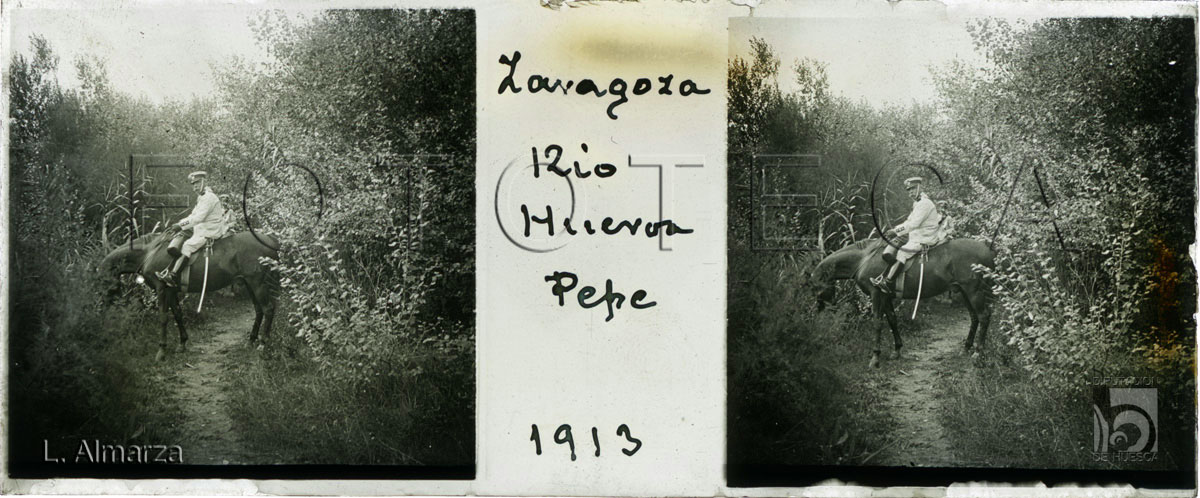 Zaragoza
Rio
Huerva
Pepe
1913
FOTOTECA
L. Almarza
DIPUTACIÓN
DE HUESCA